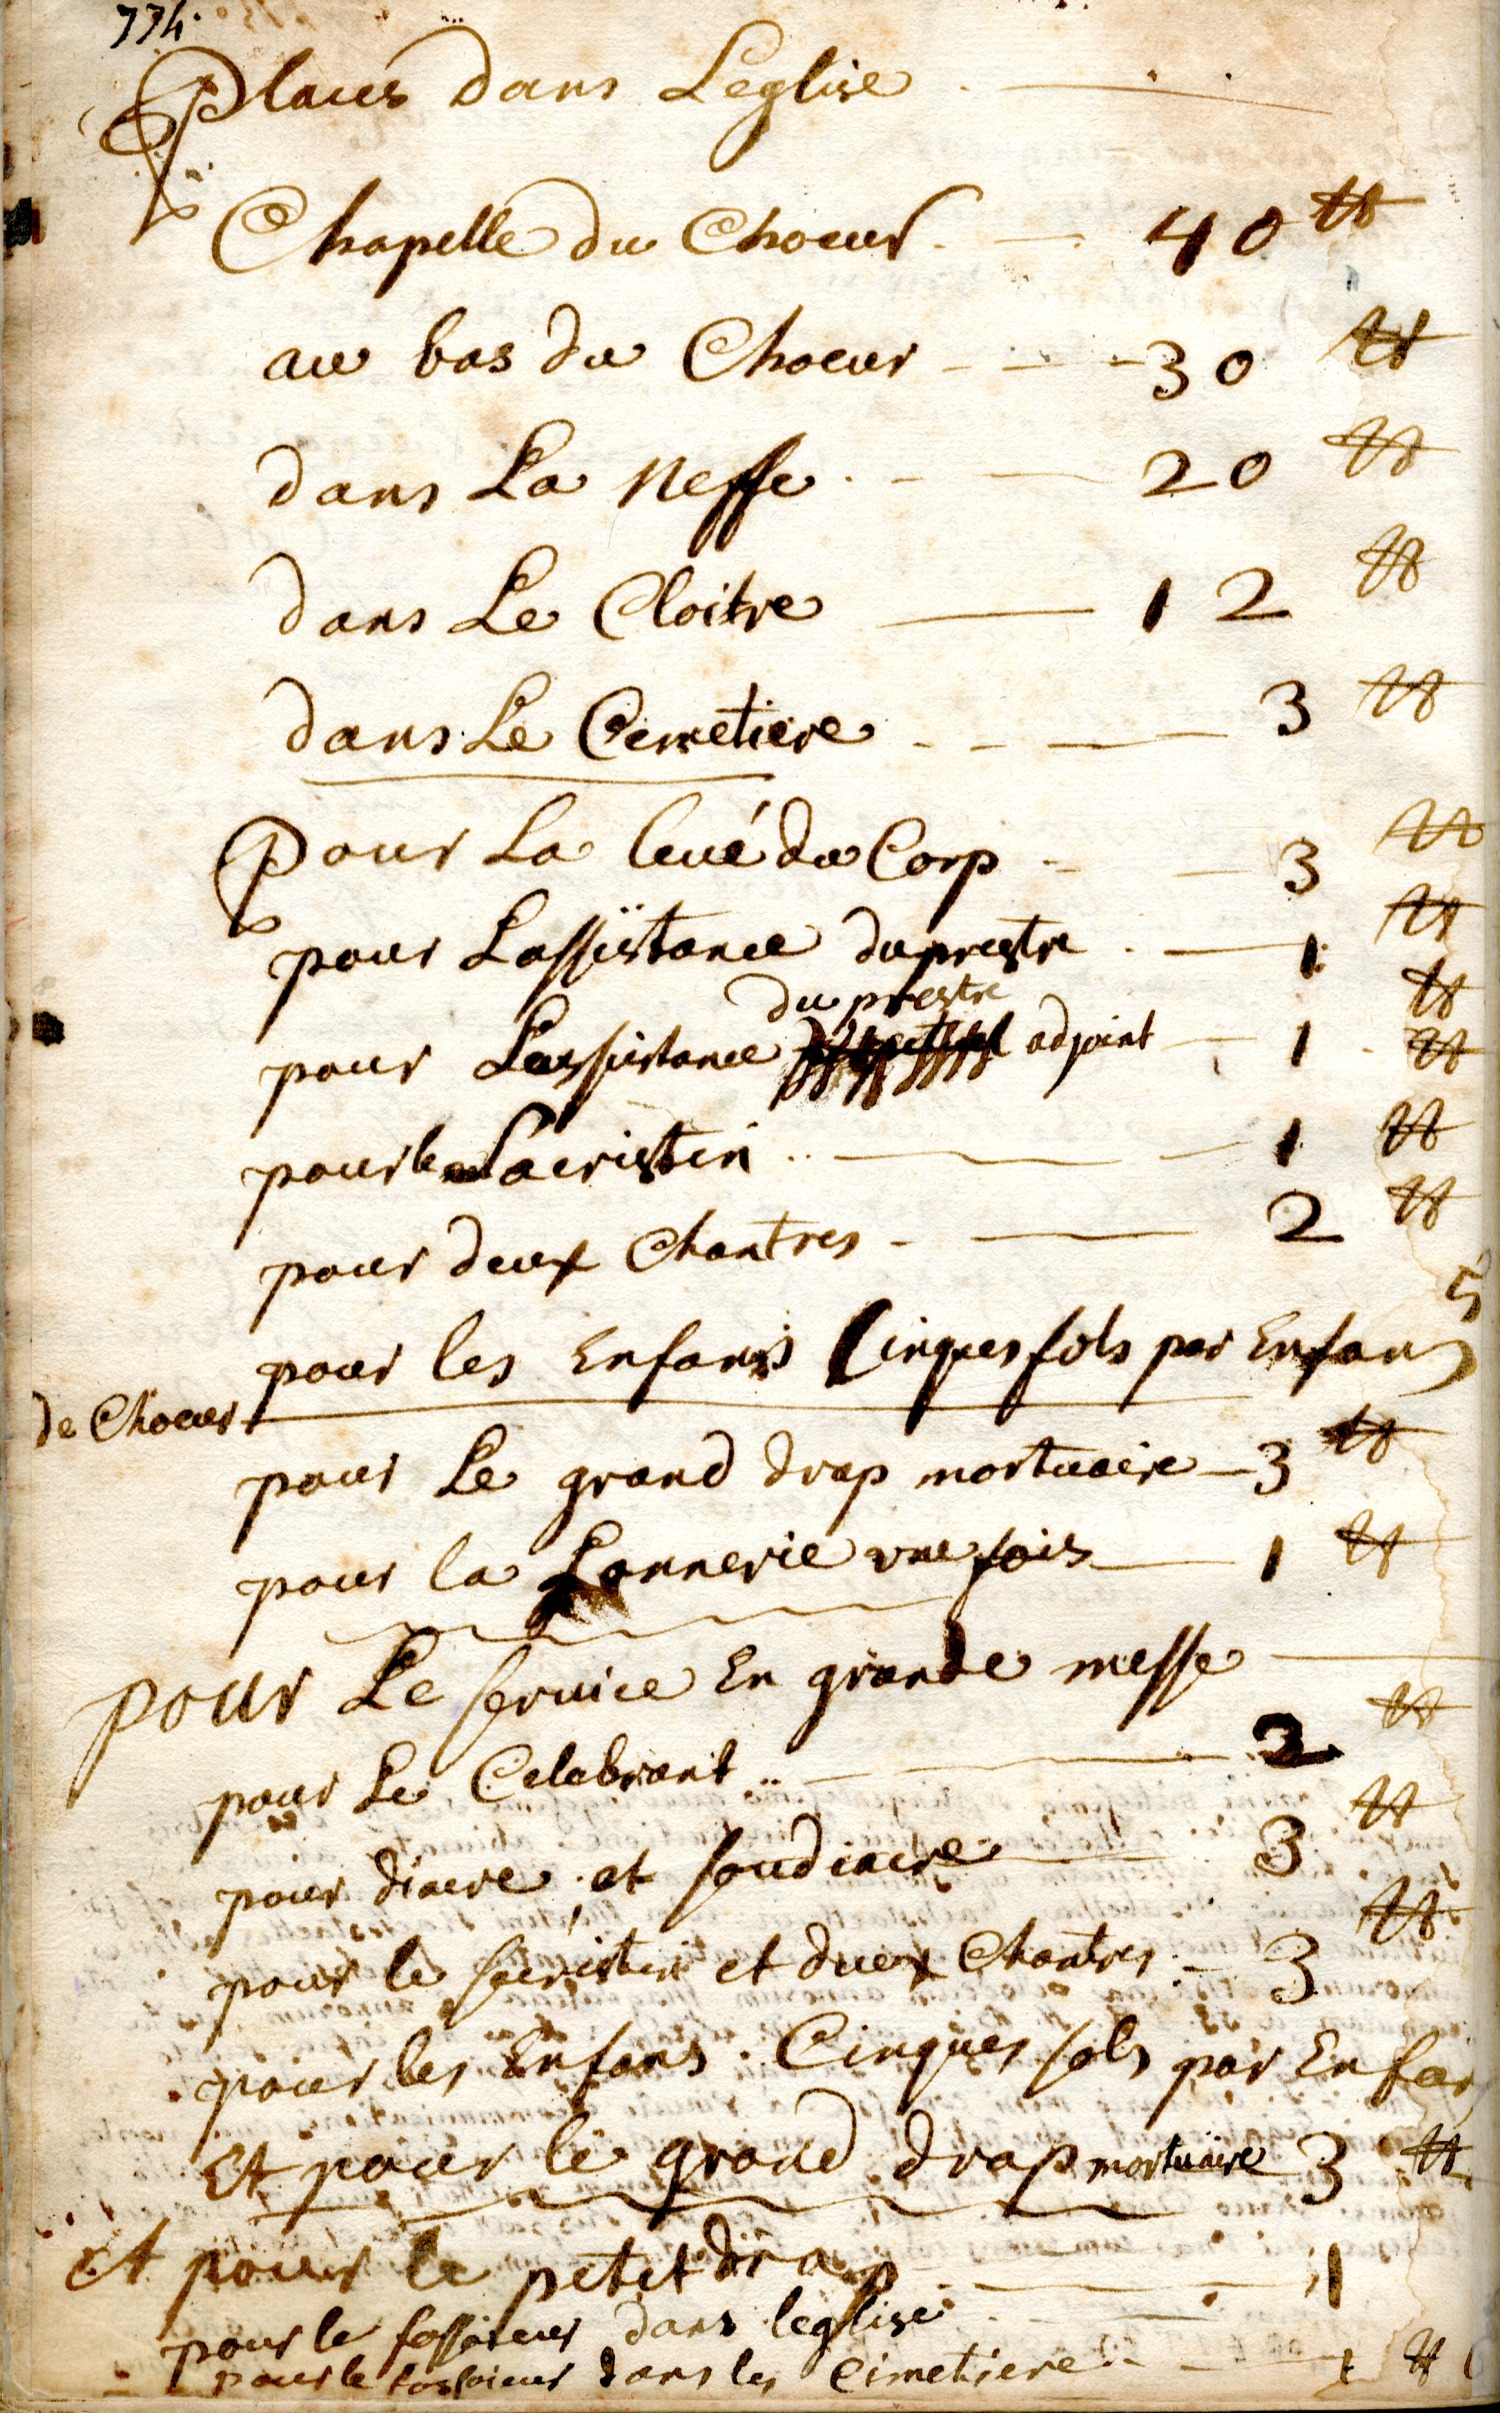 774.
Places dans Leglise
Chapelle du Choeur - 40 ₶
au bas du Choeur - - - 30 ₶
dans La Neffe - - 20 ₶
dans Le Cloitre - 12 ₶
dans Le Cemetiere - - - 3 ₶
Pour La levé du Corp - - 3 ₶
pour Lassistance du prestre - 1 ₶
du prestre
pour Lassistance adjoint - 1 ₶
₶
pour le Sacristin - 1 ₶
pour deux Chantres - 2 ₶
5
pour les Enfans Cinques sols par Enfans
de Choeur
pour Le grand drap mortuaire - 3 ₶
pour la Sonnerie une fois - 1 ₶
pour Le service En grande messe
pour Le Celebrant - 2 ₶
pour diacre et soudiacre - 3 ₶
pour le sacristin et deux Chantres - 3 ₶
pour les Enfans. Cinques sols par Enfan
Et pour le grand drap mortuaire 3 ₶
et pour le petit drap - 1
pour le fossoieur dans leglise
pour le fossoieur dans les Cimetiere - - 1 ₶